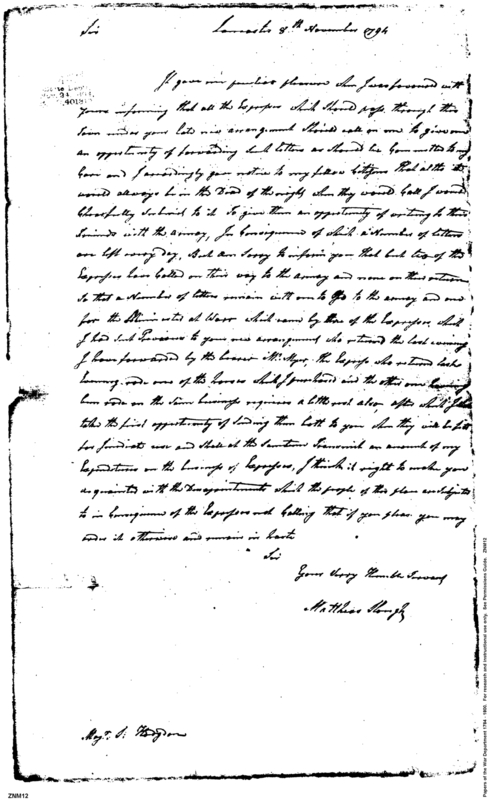 Sir Lancaster 8th November 1794
It gave me peculiar pleasure when I was favoured with
yours informing that all the Expresses which should pass through this
Town under your late new arrangement should call on me to give me
an opportunity of forwarding such letters as should be committed to my
Care and I accordingly gave notice to my fellow Citizens that altho it
would allways be in the Dead of the night when they would Call I would
Chearfully Submit to it To give them an opportunity of writing to their
Friends with the army, In Consequence of which a Number of letters
are left every day, But am Sorry to inform you that but two of the
Expresses have Called on their way to the army and none on their return
So that a Number of letters remain with me to go to the army and one
for the Minister at Warr which came by the of the Expresses, which
I had sent Previous to your new arrangement who returned the last evening
I have forwarded by the bearer Mr. Myer, the Express who returned last
Evening rode one of the Horses which I purchased and the other one
been rode on the Same business requires a little rest also, after which I shall
take the first opportunity of Sending them both to you when they will be fit
for Imediate use and shall at the Same time Transmit an account of my
Expenditures on the business of Expresses, I think it right to make you
acquainted with the Disapointments which the people of this place are Subjected
to in Consequence of the Expresses not Calling that if you please you may
order it otherwise and remain in haste
Sir
Yours Very Humble Servant
Matthias Slough
Majr. S. Hodgdon
ZNM12
Papers of the War Department 1784 - 1800. For research and instructional use only. See Permissions Guide. ZNM12